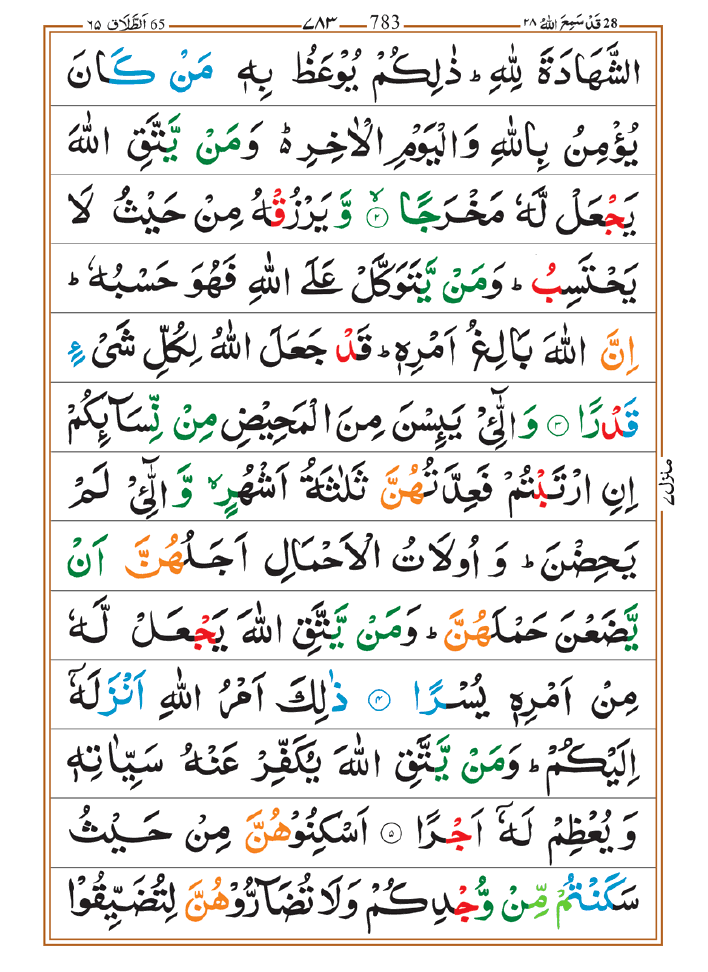 28 قَدْ سَمِعَ اللّٰهُ ۲۸ 783 ۷۸۳ 65 اَلطَّلَاق ۶۵
الشَّهَادَةَ لِلّٰهِ ؕ ذٰلِكُمْ يُوْعَظُ بِهٖ مَنْ كَانَ
يُؤْمِنُ بِاللّٰهِ وَالْيَوْمِ الْاٰخِرِ ؕ۬ وَمَنْ يَّتَّقِ اللّٰهَ
يَجْعَلْ لَّهٗ مَخْرَجًا ۙ‏﴿۲﴾ وَّيَرْزُقْهُ مِنْ حَيْثُ لَا
يَحْتَسِبُ ؕ وَمَنْ يَّتَوَكَّلْ عَلَى اللّٰهِ فَهُوَ حَسْبُهٗ ؕ
اِنَّ اللّٰهَ بَالِغُ اَمْرِهٖ ؕ قَدْ جَعَلَ اللّٰهُ لِكُلِّ شَىْءٍ
قَدْرًا ﴿۳﴾ وَالّٰٓـىِٔۡ يَٮِٕسْنَ مِنَ الْمَحِيْضِ مِنْ نِّسَآٮِٕكُمْ
اِنِ ارْتَبْتُمْ فَعِدَّتُهُنَّ ثَلٰثَةُ اَشْهُرٍ ۙ وَّالّٰٓـىِٔۡ لَمْ
يَحِضْنَ ؕ وَ اُولَاتُ الْاَحْمَالِ اَجَلُهُنَّ اَنْ
يَّضَعْنَ حَمْلَهُنَّ ؕ وَمَنْ يَّتَّقِ اللّٰهَ يَجْعَلْ لَّهٗ
مِنْ اَمْرِهٖ يُسْرًا ﴿۴﴾ ذٰلِكَ اَمْرُ اللّٰهِ اَنْزَلَهٗۤ
اِلَيْكُمْ ؕ وَمَنْ يَّتَّقِ اللّٰهَ يُكَفِّرْ عَنْهُ سَيِّاٰتِهٖ
وَيُعْظِمْ لَهٗۤ اَجْرًا ﴿۵﴾ اَسْكِنُوْهُنَّ مِنْ حَيْثُ
سَكَنْتُمْ مِّنْ وُّجْدِكُمْ وَلَا تُضَآرُّوْهُنَّ لِتُضَيِّقُوْا
منزل ۷